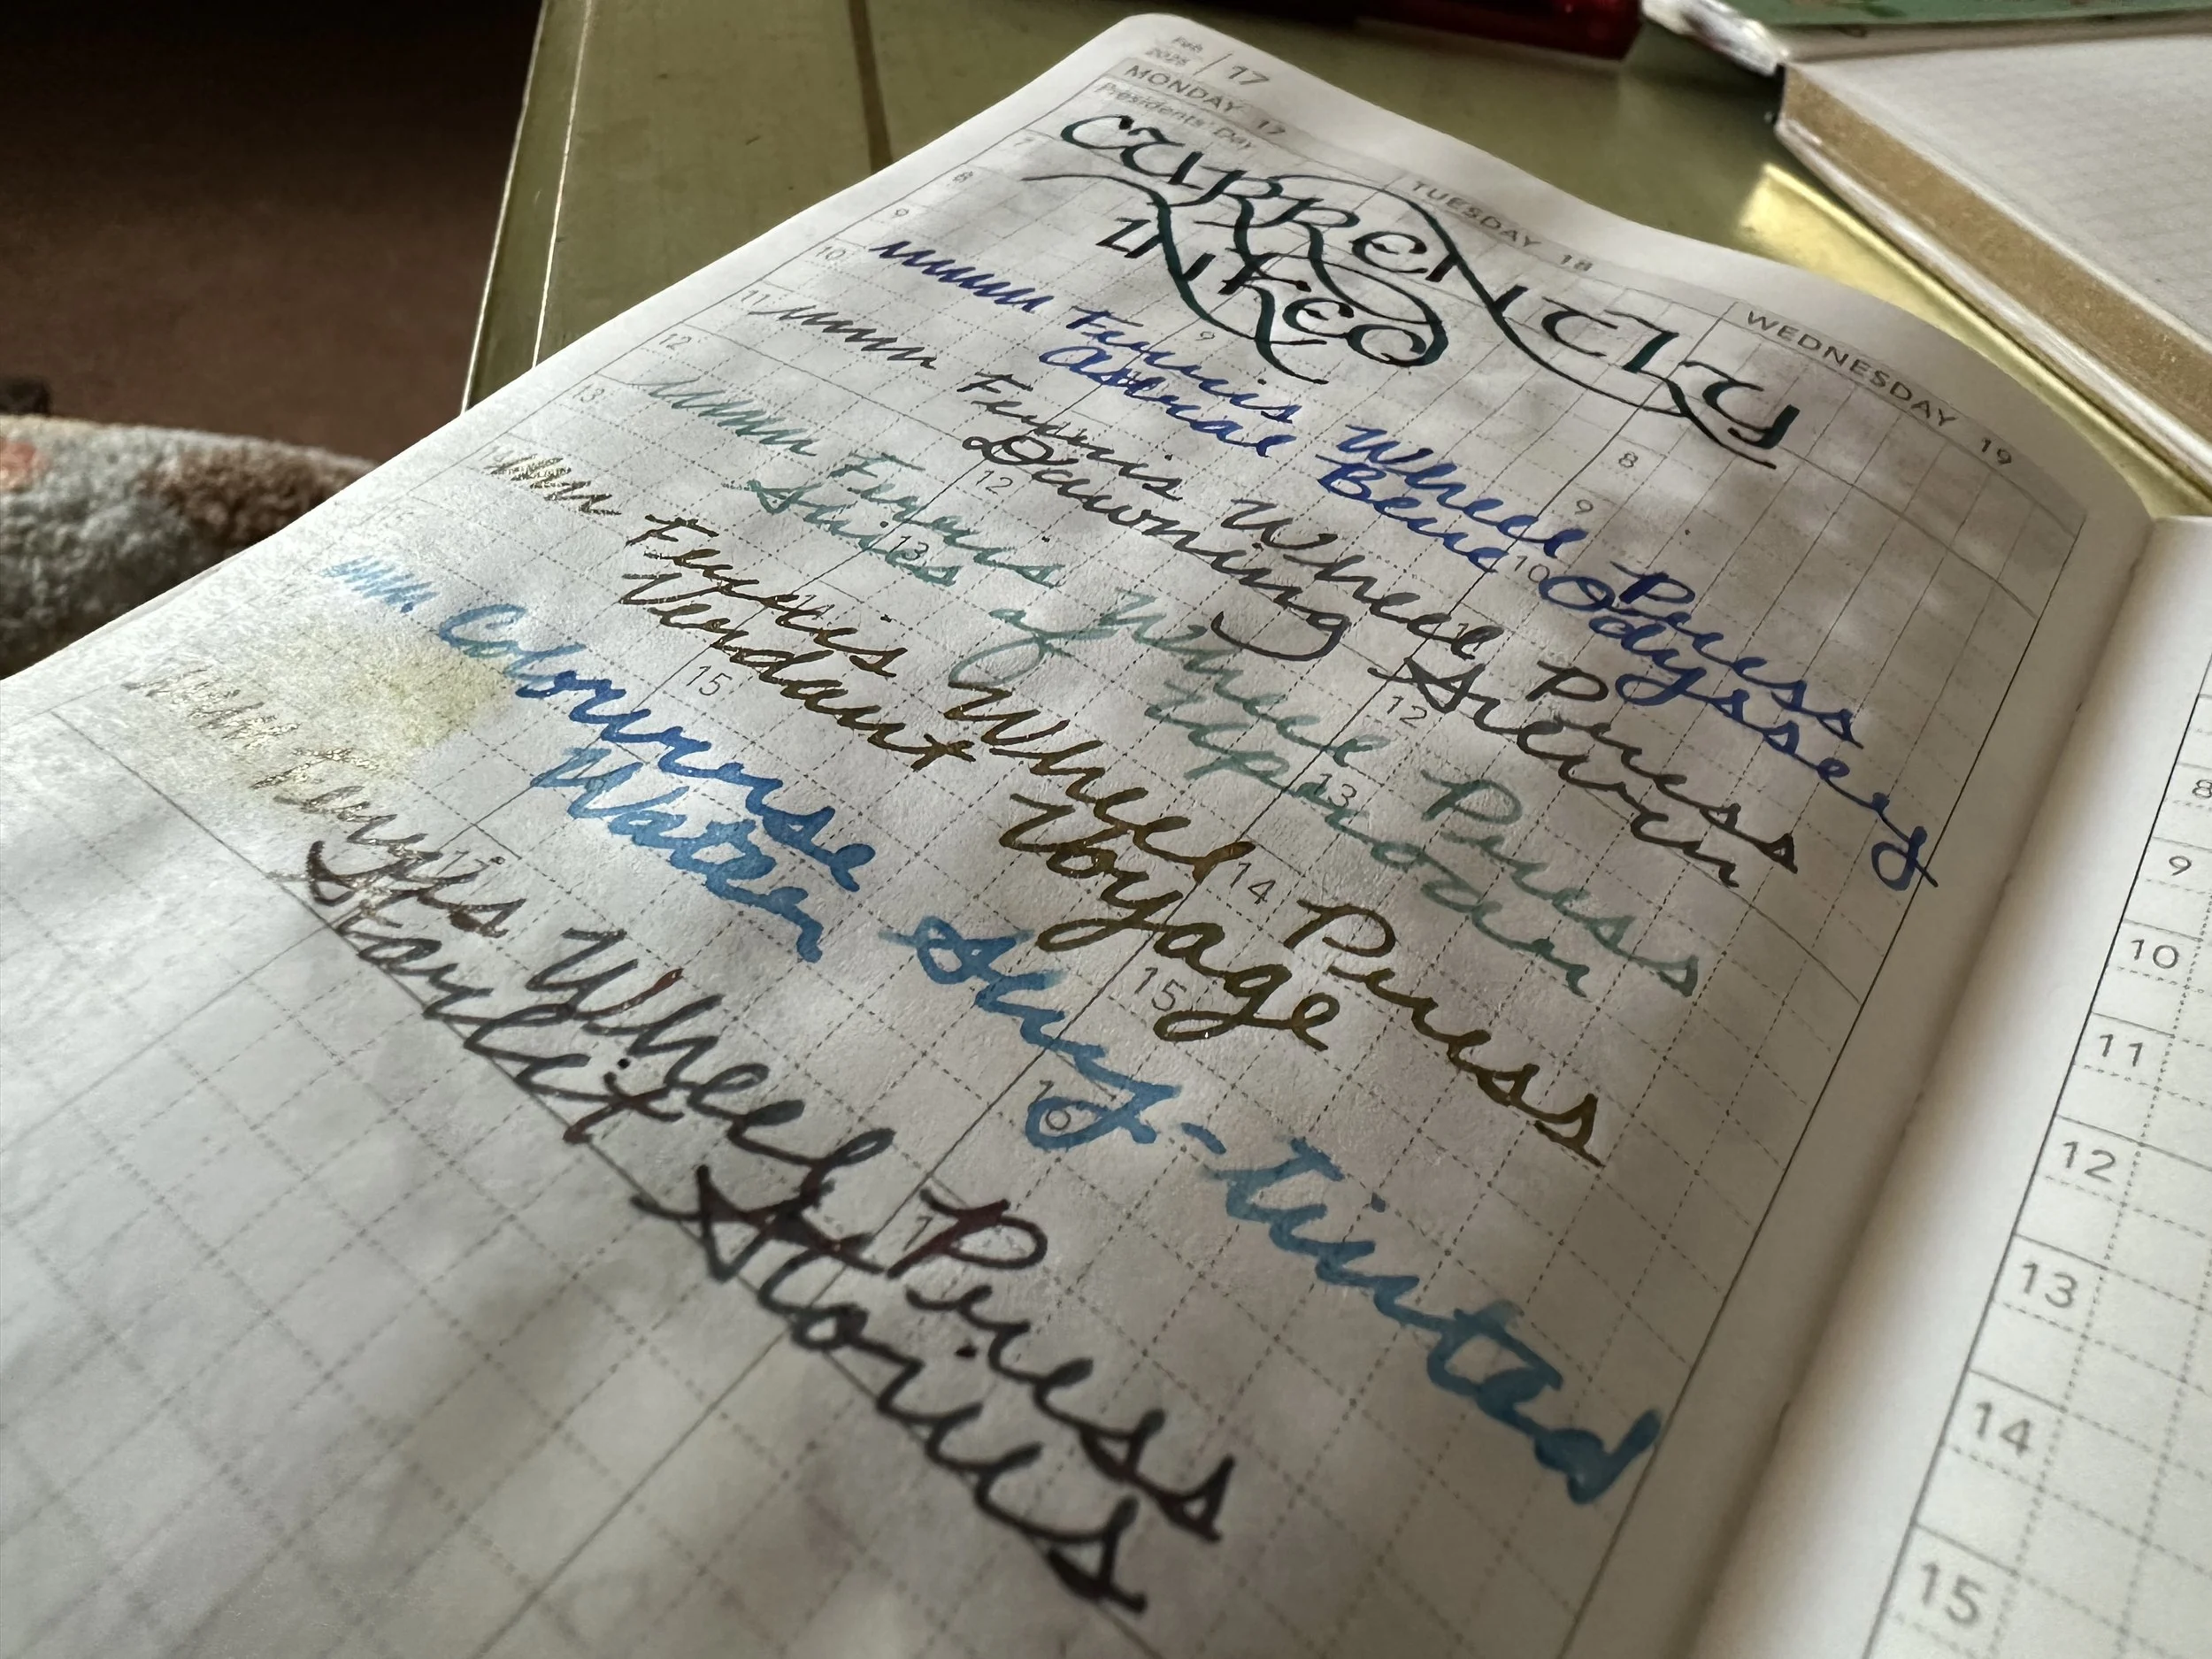 Feb
2025 | 17
MONDAY 17
TUESDAY 18
WEDNESDAY 19
Presidents' Day
CURRENTLY
INKED
Ferris Wheel Press
Astral Blue Odyssey
Ferris Wheel Press
Dawning
Ferris Wheel Press
Skies of Upinodar
Ferris Wheel Press
Verdant Voyage
Colorverse Sky-tinted
Water
Ferris Wheel Press
Starlit Stories
7
8
9
10
11
12
13
15
17
9
12
13
15
8
9
10
12
13
14
15
16
8
9
10
11
12
13
14
15